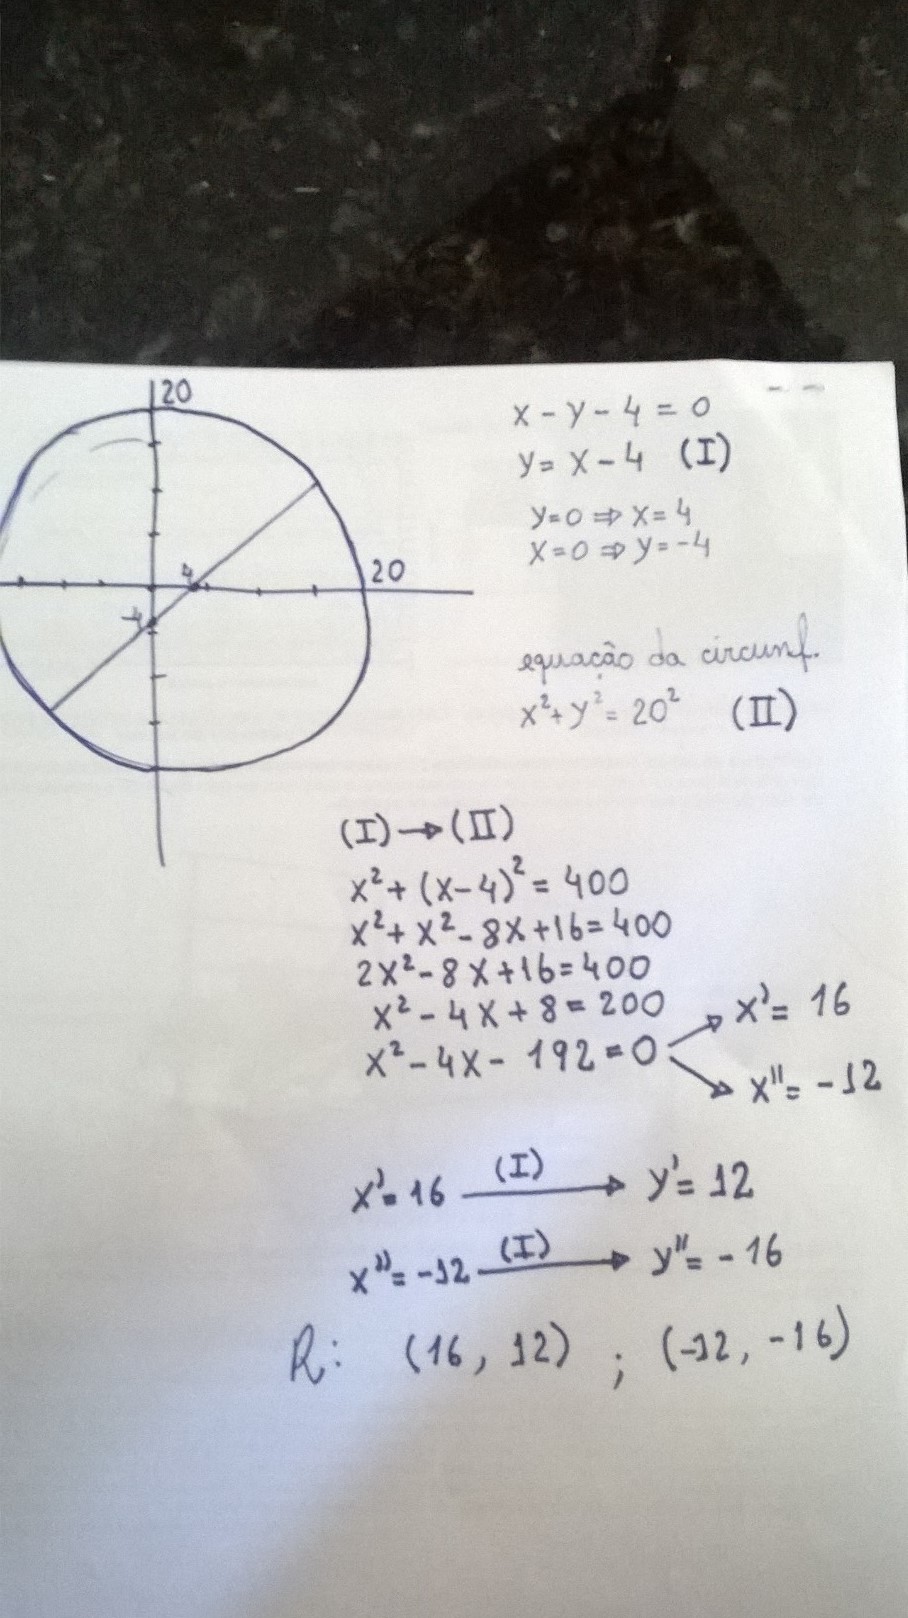 20
20
4
-4
x - y - 4 = 0
y = x - 4 (I)
y=0 ⇒ x=4
x=0 ⇒ y=-4
equação da circunf.
x²+y²=20² (II)
(I)→(II)
x²+(x-4)²=400
x²+x²-8x+16=400
2x²-8x+16=400
x²-4x+8=200
x²-4x-192=0
x'=16
x''=-12
x'=16 (I)→ y'=12
x''=-12 (I)→ y''=-16
R: (16, 12) ; (-12, -16)